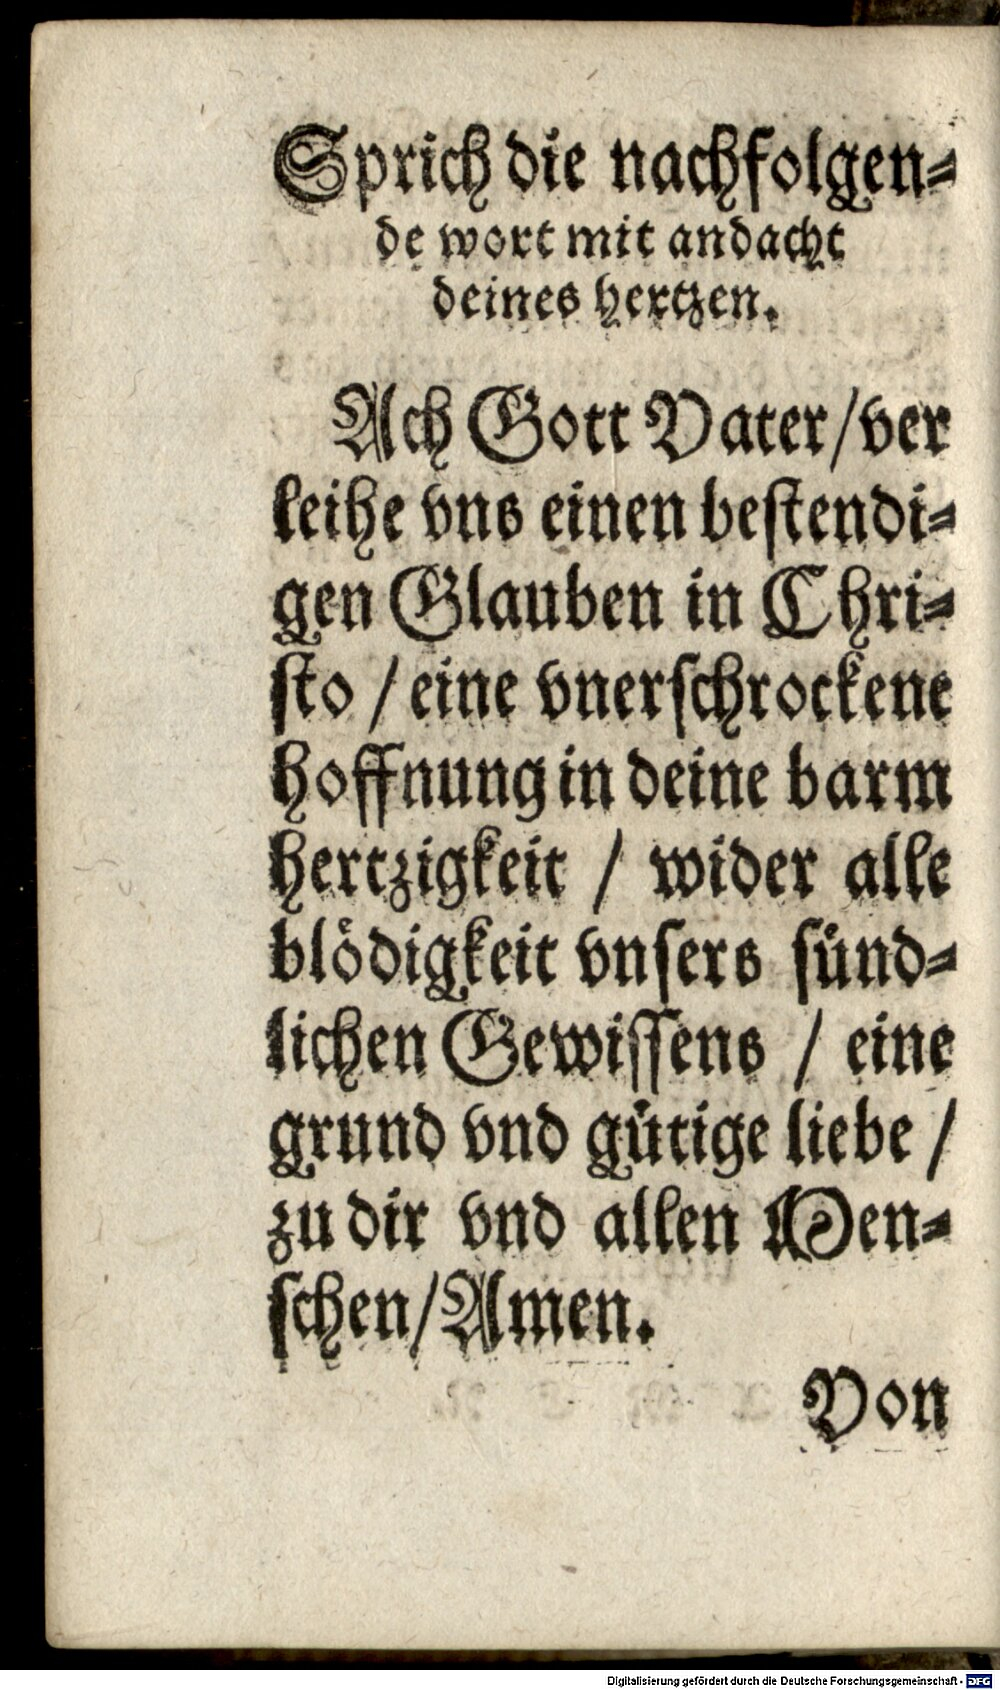 Sprich die nachfolgen-
de wort mit andacht
deines hertzen.
Ach Gott Vater/ver
leihe vns einen bestendi-
gen Glauben in Chri-
sto / eine vnerschrockene
hoffnung in deine barm
hertzigkeit / wider alle
blödigkeit vnsers sünd-
lichen Gewissens / eine
grund vnd gütige liebe /
zu dir vnd allen Men-
schen/Amen.
Von
Digitalisierung gefördert durch die Deutsche Forschungsgemeinschaft - DFG